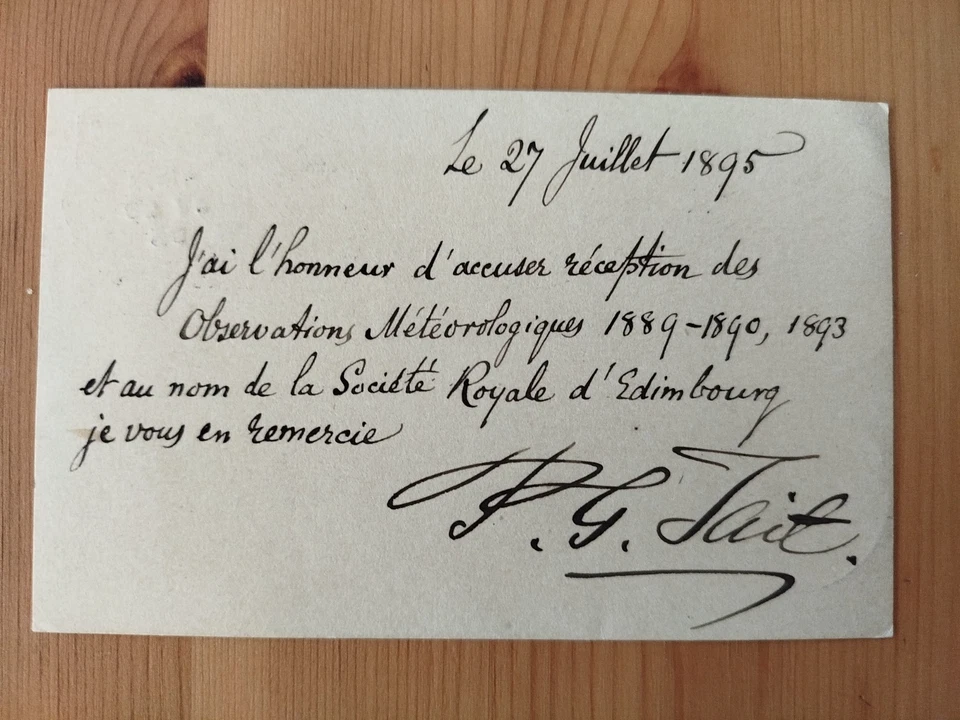 Le 27 Juillet 1895
J'ai l'honneur d'accuser réception des
Observations Météorologiques 1889-1890, 1893
et au nom de la Société Royale d'Edimbourg
je vous en remercie
P. G. Tait.